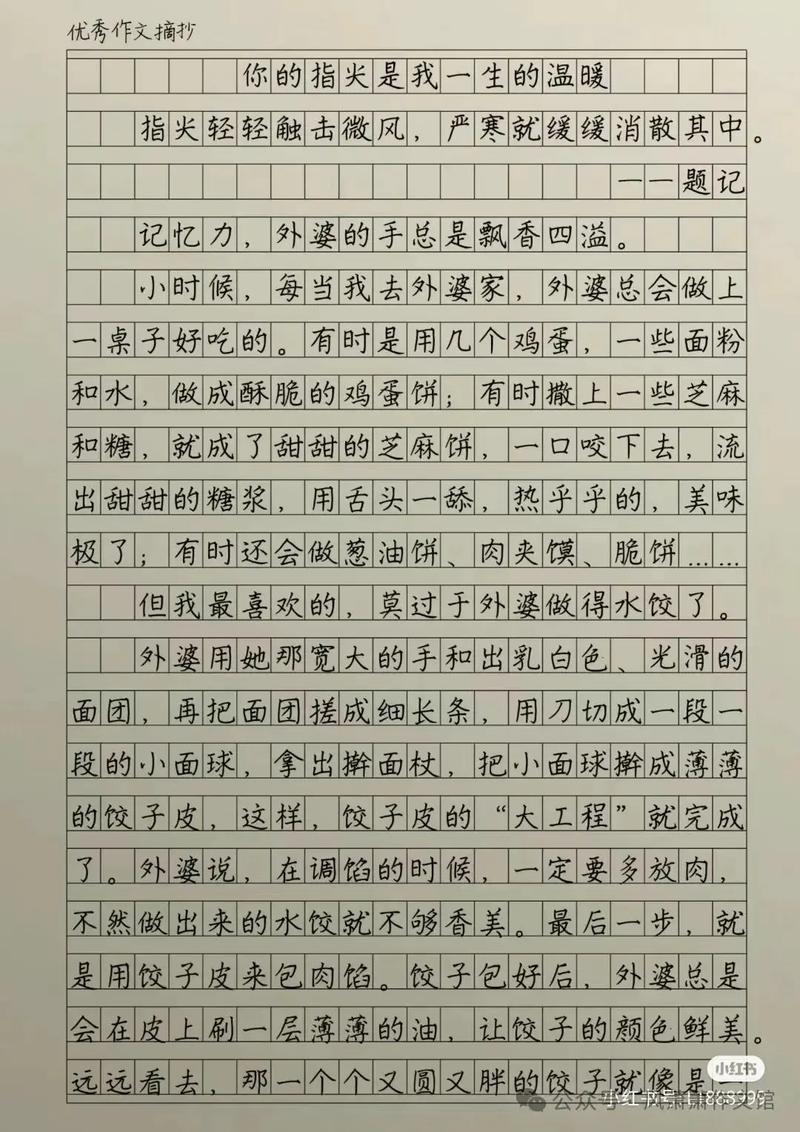 优秀作文摘抄
你的指尖是我一生的温暖
指尖轻轻触击微风，严寒就缓缓消散其中。
——题记
记忆力，外婆的手总是飘香四溢。
小时候，每当我去外婆家，外婆总会做上
一桌子好吃的。有时是用几个鸡蛋，一些面粉
和水，做成酥脆的鸡蛋饼；有时撒上一些芝麻
和糖，就成了甜甜的芝麻饼，一口咬下去，流
出甜甜的糖浆，用舌头一舔，热乎乎的，美味
极了；有时还会做葱油饼、肉夹馍、脆饼……
但我最喜欢的，莫过于外婆做得水饺了。
外婆用她那宽大的手和出乳白色、光滑的
面团，再把面团搓成细长条，用刀切成一段一
段的小面球，拿出擀面杖，把小面球擀成薄薄
的饺子皮，这样，饺子皮的“大工程”就完成
了。外婆说，在调馅的时候，一定要多放肉，
不然做出来的水饺就不够香美。最后一步，就
是用饺子皮来包肉馅。饺子包好后，外婆总是
会在皮上刷一层薄薄的油，让饺子的颜色鲜美。
远远看去，那一个个又圆又胖的饺子就像是一
小红书
小红书号
公众号